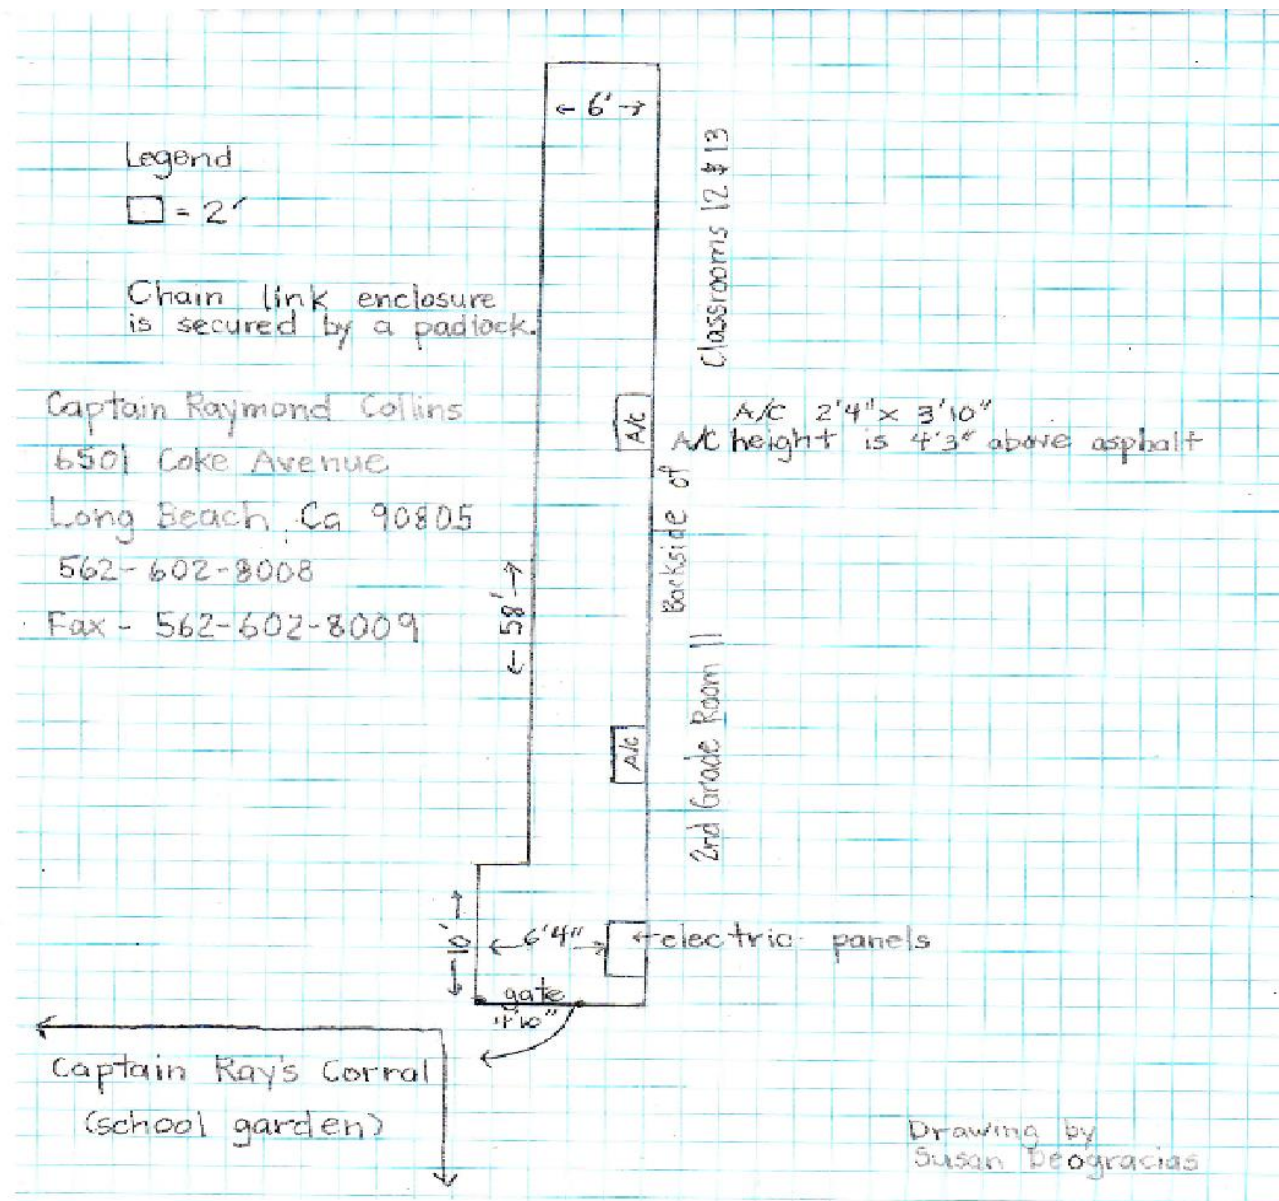 ← 6' →
Legend
□ = 2'
Classrooms 12 & 13
Chain link enclosure
is secured by a padlock.
Captain Raymond Collins
6501 Coke Avenue
Long Beach, Ca 90805
562-602-8008
Fax - 562-602-8009
A/C
A/C 2'4" x 3'10"
A/C height is 4'3" above asphalt
Backside of
← 58' →
2nd Grade Room 11
A/c
← 10' →
← 6'4" →
← electric panels
gate
4'10"
Captain Ray's Corral
(school garden)
Drawing by
Susan Deogracias